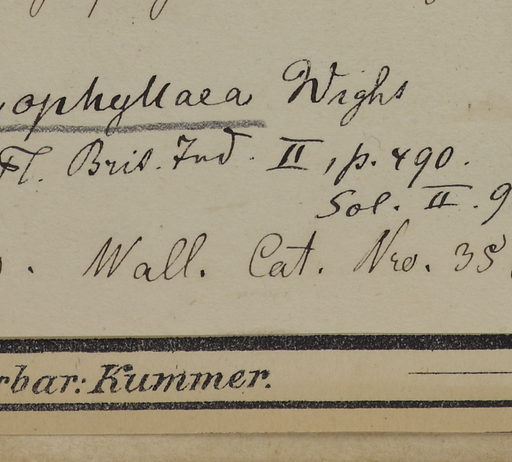 ophyllaea Wight
Fl. Brit. Ind. II, p. 490.
Sol. II. 9
). Wall. Cat. Nro. 35
rbar: Kummer.